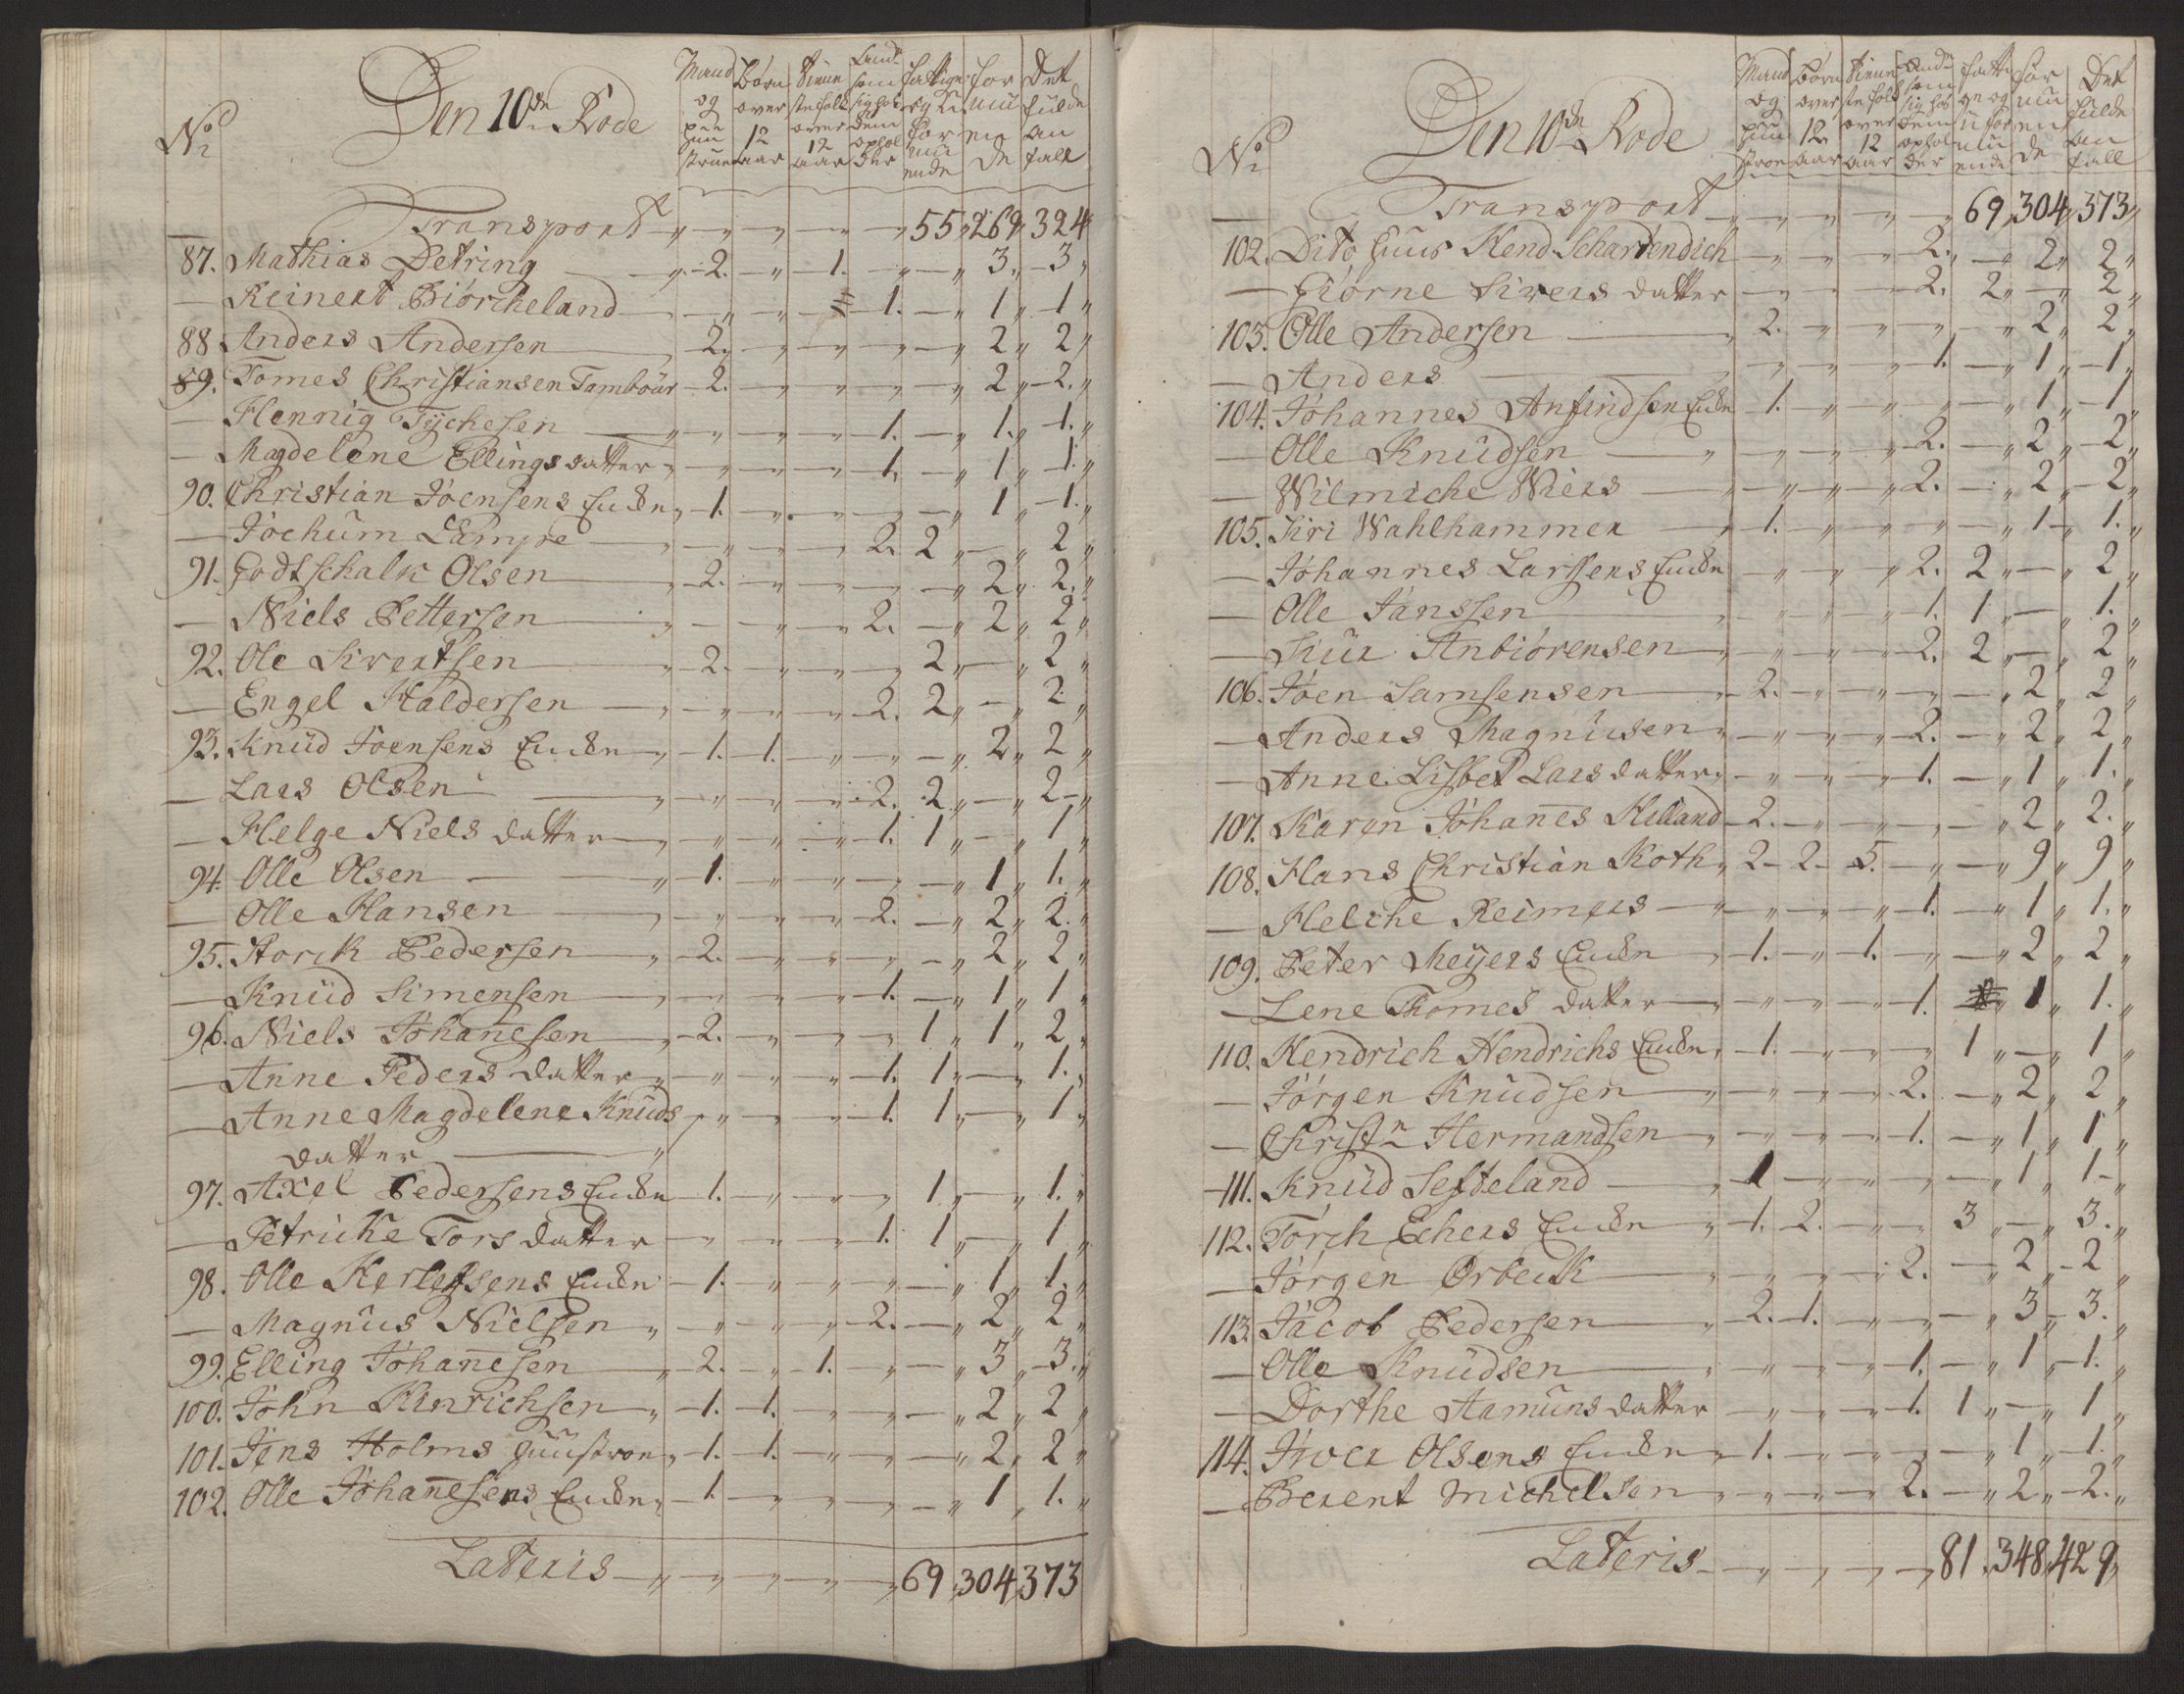 No
Den 10de Rode
Mand og hustruer
Børn over 12 aar
Tienne ste folk over 12 aar
Land. som sig hos dem ophol der
fattige og u for mu ende
for mu en de
Det fulde an tall
Transport 55 269 324
87. Mathias Detring 2. 1. 3 3
Reinert Biørcheland 1. 1 1
88 Anders Andersen 2. 2 2
89. Tomes Christiansen Tambour 2. 2 2.
Hennig Tychesen 1. 1. 1.
Magdelene Ellings datter 1. 1 1.
90. Christian Joensens Encke 1. 1 1.
Jochum Lampe 2. 2 2
91. Godtschalk Olsen 2. 2 2.
Niels Pettersen 2. 2 2
92. Ole Sivertsen 2. 2 2
Engel Haldersen 2. 2 2
93. Knud Joensens Encke 1. 1. 2 2
Lars Olsen 2. 2 2
Helge Niels datter 1. 1 1
94. Olle Olsen 1. 1 1.
Olle Hansen 2. 2 2.
95. Storck Pedersen 2. 2 2
Knud Simensen 1. 1 1
96. Niels Johanesen 2. 1 1 2
Anne Peders datter 1. 1 1.
Anne Magdelene Knuds 1. 1 1
datter
97. Axel Pedersens Encke 1. 1 1.
Petricke Tors datter 1. 1 1
98. Olle Kerlefsens Encke 1. 1 1.
Magnus Nielsen 2. 2 2
99. Elling Johanesen 2. 1. 3 3.
100. John Hinrichsen 1. 1. 2 2
101. Jens Holms hustroe 1. 1. 2 2
102. Olle Johanesens Encke 1. 1 1.
Lateris 69 304 373
No
Den 10de Rode
Mand og hustroe
Børn over 12 aar
Tienne ste folk over 12 aar
Land. som sig hos dem ophol der
fatti ge og u for mu ende
for mu en de
Det fulde an tall
Transport 69 304 373
102. Dito huus Hend. Schartendich 2. 2 2
Giørne Sivers datter 2. 2 2
103. Olle Andersen 2. 2 2
Anders 1. 1 1
104. Johannes Anfindsen Encke 1. 1 1
Olle Knudsen 2. 2 2
Wilmiche Wiers 2. 2 2
105. Siri Wahlhammer 1. 1 1.
Johannes Larsens Encke 2. 2 2
Olle Janssen 1. 1 1.
Siur Anbiørensen 2. 2 2
106. Joen Samsensen 2. 2 2
Anders Magnusen 2. 2 2
Anne Lisbet Lars datter 1. 1 1.
107. Karen Johanes Helland 2. 2 2.
108. Hans Christian Koth 2 2 5. 9 9
Helche Reimers 1. 1 1.
109. Peter Meyers Encke 1. 1. 2 2
Lene Thomes datter 1. 1 1.
110. Hendrich Hendrichs Encke 1. 1 1
Jørgen Knudsen 2. 2 2
Christn Hermandsen 1. 1 1
111. Knud Sefteland 1 1 1
112. Torch Echers Encke 1. 2. 3 3.
Jørgen Ørbeck 2. 2 2
113. Jacob Pedersen 2. 1. 3 3.
Olle Knudsen 1. 1 1.
Dorthe Aamuns datter 1. 1 1
114. Iwer Olsens Encke 1. 1 1.
Berent Michelsen 2. 2 2.
Lateris 81 348 429